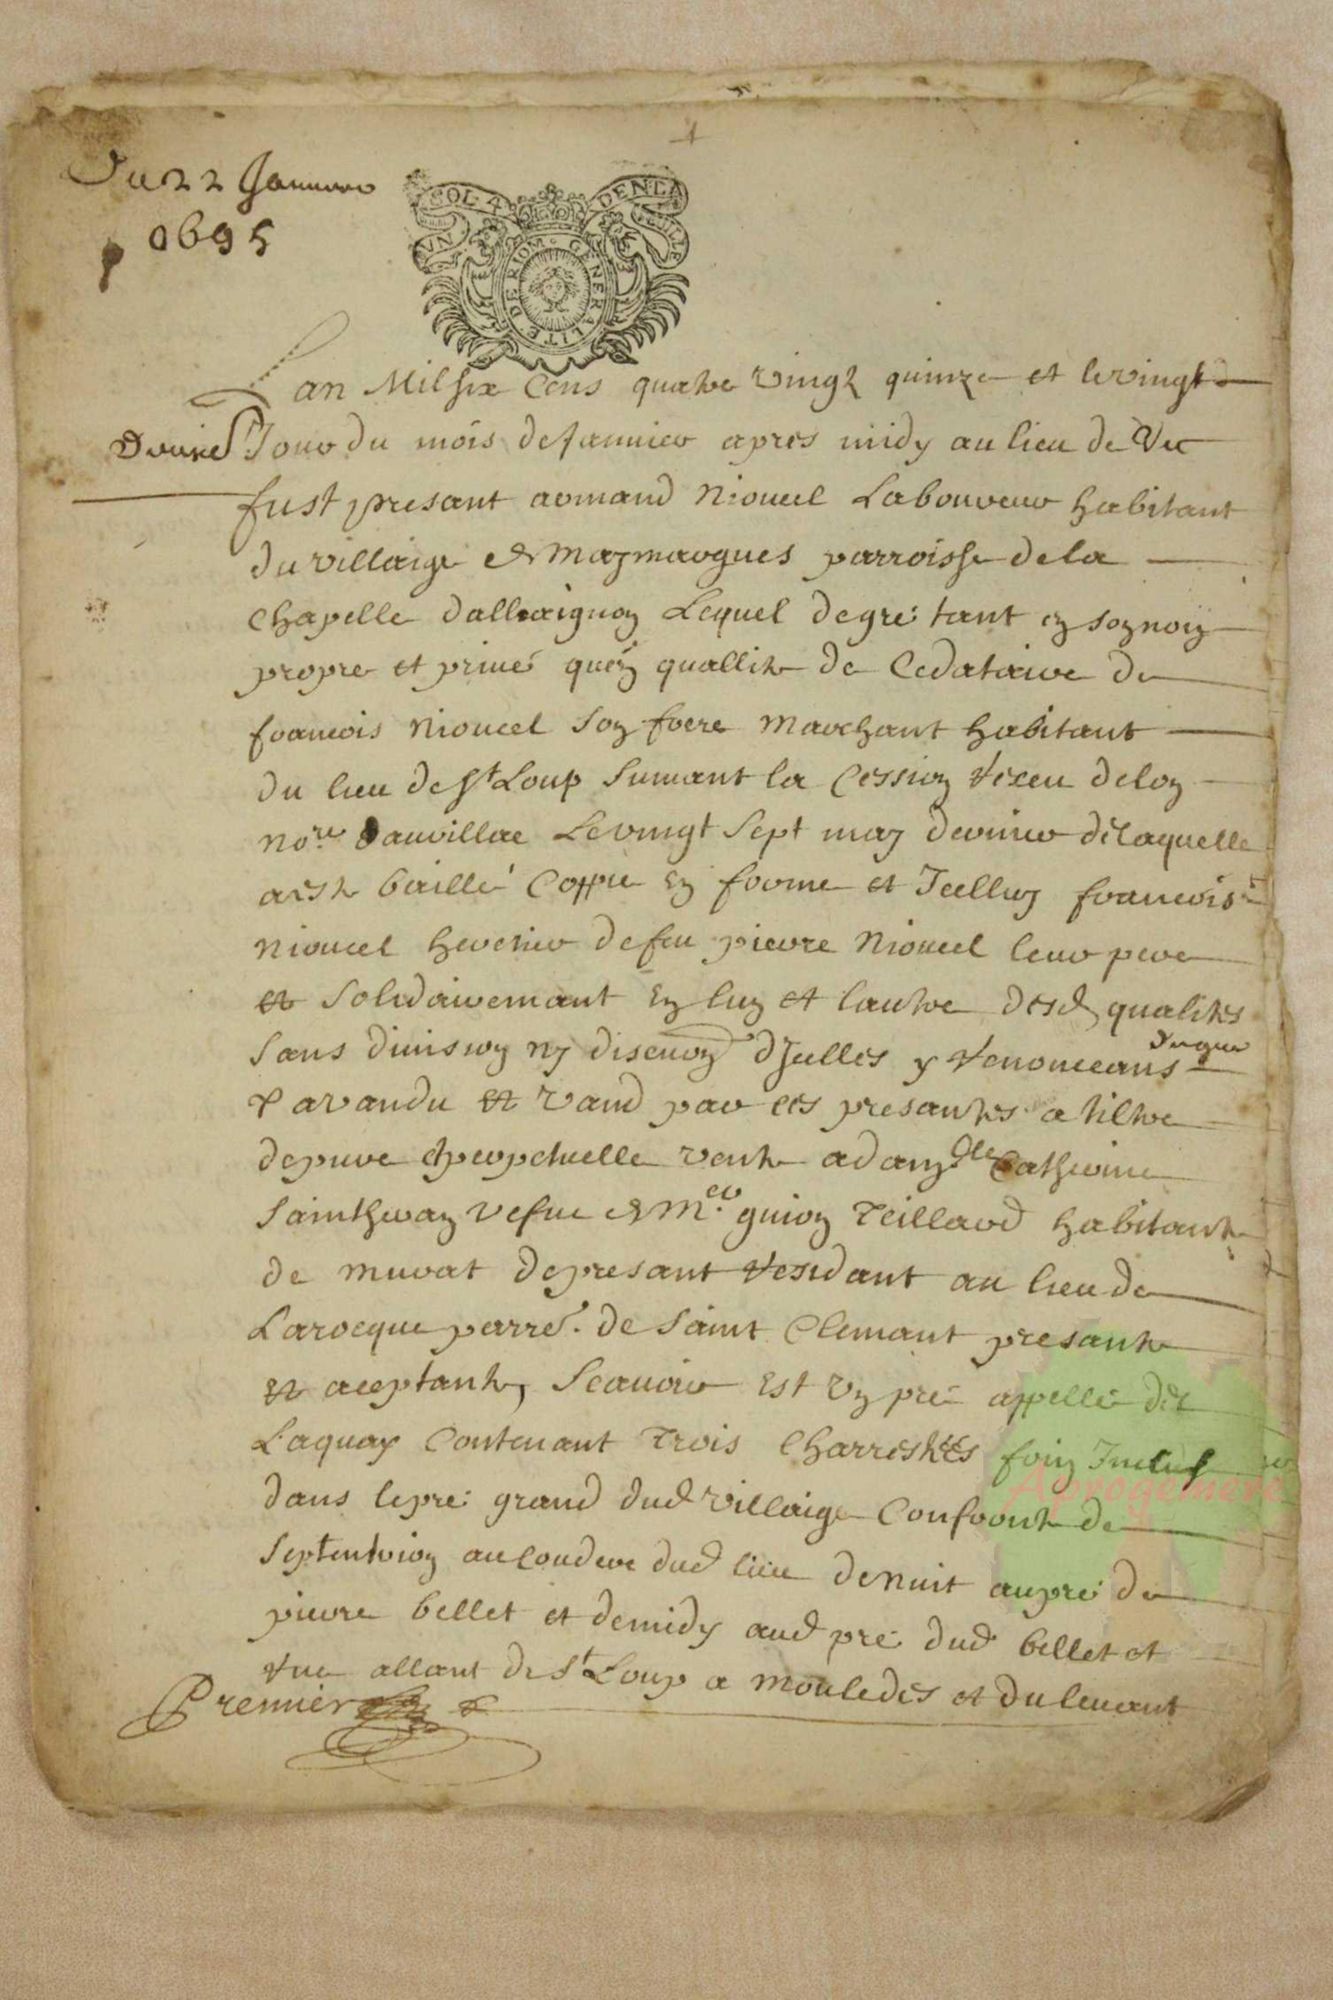 1
Du 22 Janvier
1695
UN SOL 4 DEN LA FEUILLE
GENERALITE DE RIOM
Lan Mil six Cens quatre vingt quinze et le vingt
Jour du mois de Janvier apres midy au lieu de Vic
fust presant armand Nioucel Laboureur habitant
du villaige de mazmargues parroisse de la
Chapelle dallaignon Lequel de gré tant en son noin
propre et privé quen quallite de Cedataire de
francois Nioucel son frere Marchant habitant
du lieu de St Loup Suivant la Cession receu deloy
nore dauvillac Le vingt Sept may dernier de laquelle
a este baillé Coppie En forme et Icelluy francois
Nioucel heretier de feu pierre Nioucel leur pere
et Solidairemant En lun et lautre desd qualites
Sans division ny discution dIcelles y renonceans
a vandu et vand par ces presantes a tiltre
de pure et perpetuelle vente a dam.lle Catherine
vefue de M.e guion Teillard habitante
de murat de presant residant au lieu de
Larocque parre. de Saint Clemant presante
et aceptante, Scavoir Est un pré appellé de
Laquay Contenant Trois Charretées foin
dans le pré grand dud villaige Confronte de
Septentrion au Couderc dud lieu de nuit au pré de
pierre bellet et de midy aud pré dud bellet et
rue allant de St Loup a mouledes et du levant
Premier
Aprogemere